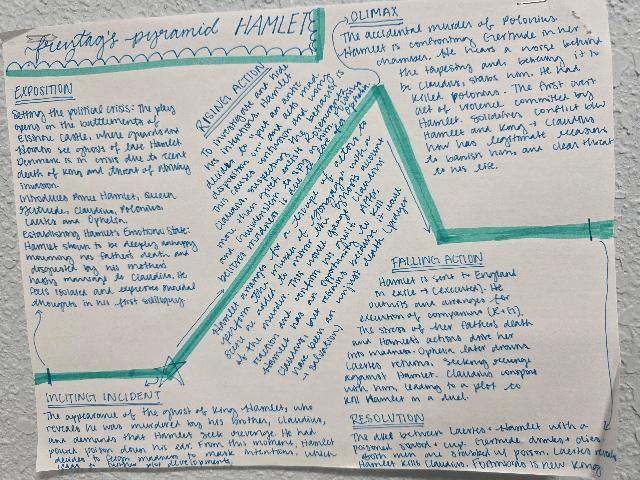 freytag's pyramid HAMLET
EXPOSITION
Setting the political crisis: The play
opens on the battlements of
Elsinore Castle, where guards and
Horatio see ghost of late Hamlet
Denmark is in crisis due to recent
death of King and threat of
invasion.
Introduces Prince Hamlet, Queen
Gertrude, Claudius, Polonius,
Laertes and Ophelia.
Establishing Hamlet's Emotional State:
Hamlet shown to be deeply unhappy
mourning his father's death and
disgusted by his mother's
hasty marriage to Claudius. He
feels isolated and expresses suicidal
thoughts in his first soliloquy
INCITING INCIDENT
The appearance of the ghost of King Hamlet, who
reveals he was murdered by his brother, Claudius,
and demands that Hamlet seek revenge. He had
poured poison down his ear. From this moment, Hamlet
decides to feign madness to mask intentions, which
leads to further plot developments.
RISING ACTION
To investigate and hide
his intentions, Hamlet
decides to put an antic
disposition on and acts mad.
This causes confusion and
Claudius, suspecting his behaviour is
more than grief,
and Guildenstern to spy
believes madness is due to
Hamlet arranges for a troupe of actors to
perform 'The Murder of Gonzago' with a
scene he added to mirror the ghost's account
of the murder. This was to gauge Claudius'
reaction and confirm his guilt. After
Hamlet has an opportunity to kill
Claudius but refuses because it would
have been an unjust death (prayer
→ salvation)
CLIMAX
The accidental murder of Polonius.
Hamlet is confronting Gertrude in her
chamber. He hears a noise behind
the tapestry and believing it to
be Claudius stabs him. He had
killed Polonius. The first overt
act of violence committed by
Hamlet. Solidifies conflict b/w
Hamlet and King → Claudius
now has legitimate reasons
to banish him, and clear threat
to his life.
FALLING ACTION
Hamlet is sent to England
in exile → (executed). He
outwits and arranges for
execution of companions (R+G).
The stress of her father's death
and Hamlet's actions drive her
into madness. Ophelia later drowns
Laertes returns. Seeking revenge
against Hamlet. Claudius conspires
with him, leading to a plot to
kill Hamlet in a duel.
RESOLUTION
The duel between Laertes + Hamlet with a
poisoned sword + cup. Gertrude drinks + dies
Both men are stabbed w/ poison. Laertes reveals
Hamlet kills Claudius. Fortinbras is new King